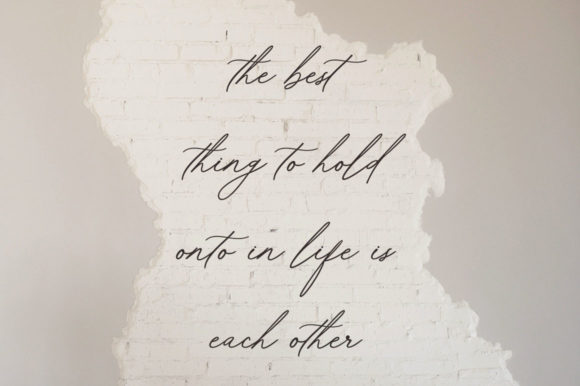 the best
thing to hold
onto in life is
each other